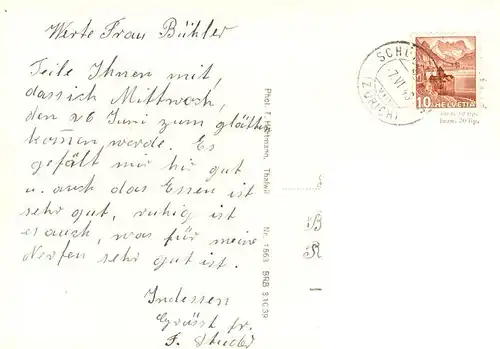 Werte Frau Bühler
Teile Ihnen mit,
dass ich Mittwoch,
den 26 Juni zum glätten
kom̅en werde. Es
gefällt mir hir gut
u. auch das Essen ist
sehr gut, ruhig ist
es auch, was für meine
Nerfen sehr gut ist.
Indessen
Grüsst fr.
F. Studer
Phot. F. Hofmann, Thalwil Nr. 1563 BRB 3.10.39
SCHÖ
ZÜRICH
10
HELVETIA
B
R